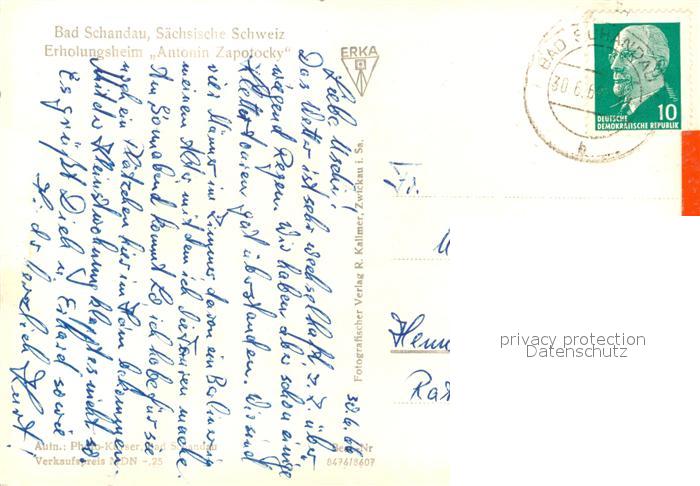 Bad Schandau, Sächsische Schweiz
Erholungsheim „Antonin Zapotocky"
ERKA
BAD SCHANDAU
30.6.6
DEUTSCHE
DEMOKRATISCHE REPUBLIK
10
30.6.66
Liebe Uschi!
Das Wetter ist sehr wechselhaft z. Z. über-
wiegend Regen. Wir haben aber schon einige
Klettertouren gut überstanden. Wir sind
vier Männer im Zimmer, davon ein Berliner
meinen Alters mit dem ich die Touren mache.
Am Sonnabend kommt & ich habe für sie
noch ein Plätzchen hier im Heim bekommen.
Mit der Kleinstwohnung klappt es nicht so.
Es grüßt Dich u. Erhard sowie
herzlich Kurt!
Fotografischer Verlag R. Kallmer, Zwickau i. Sa.
Fr.
Henn
Ra
Autn.: Bad Schandau
Verkaufspreis MDN -,25
Nr
847618607
privacy protection
Datenschutz